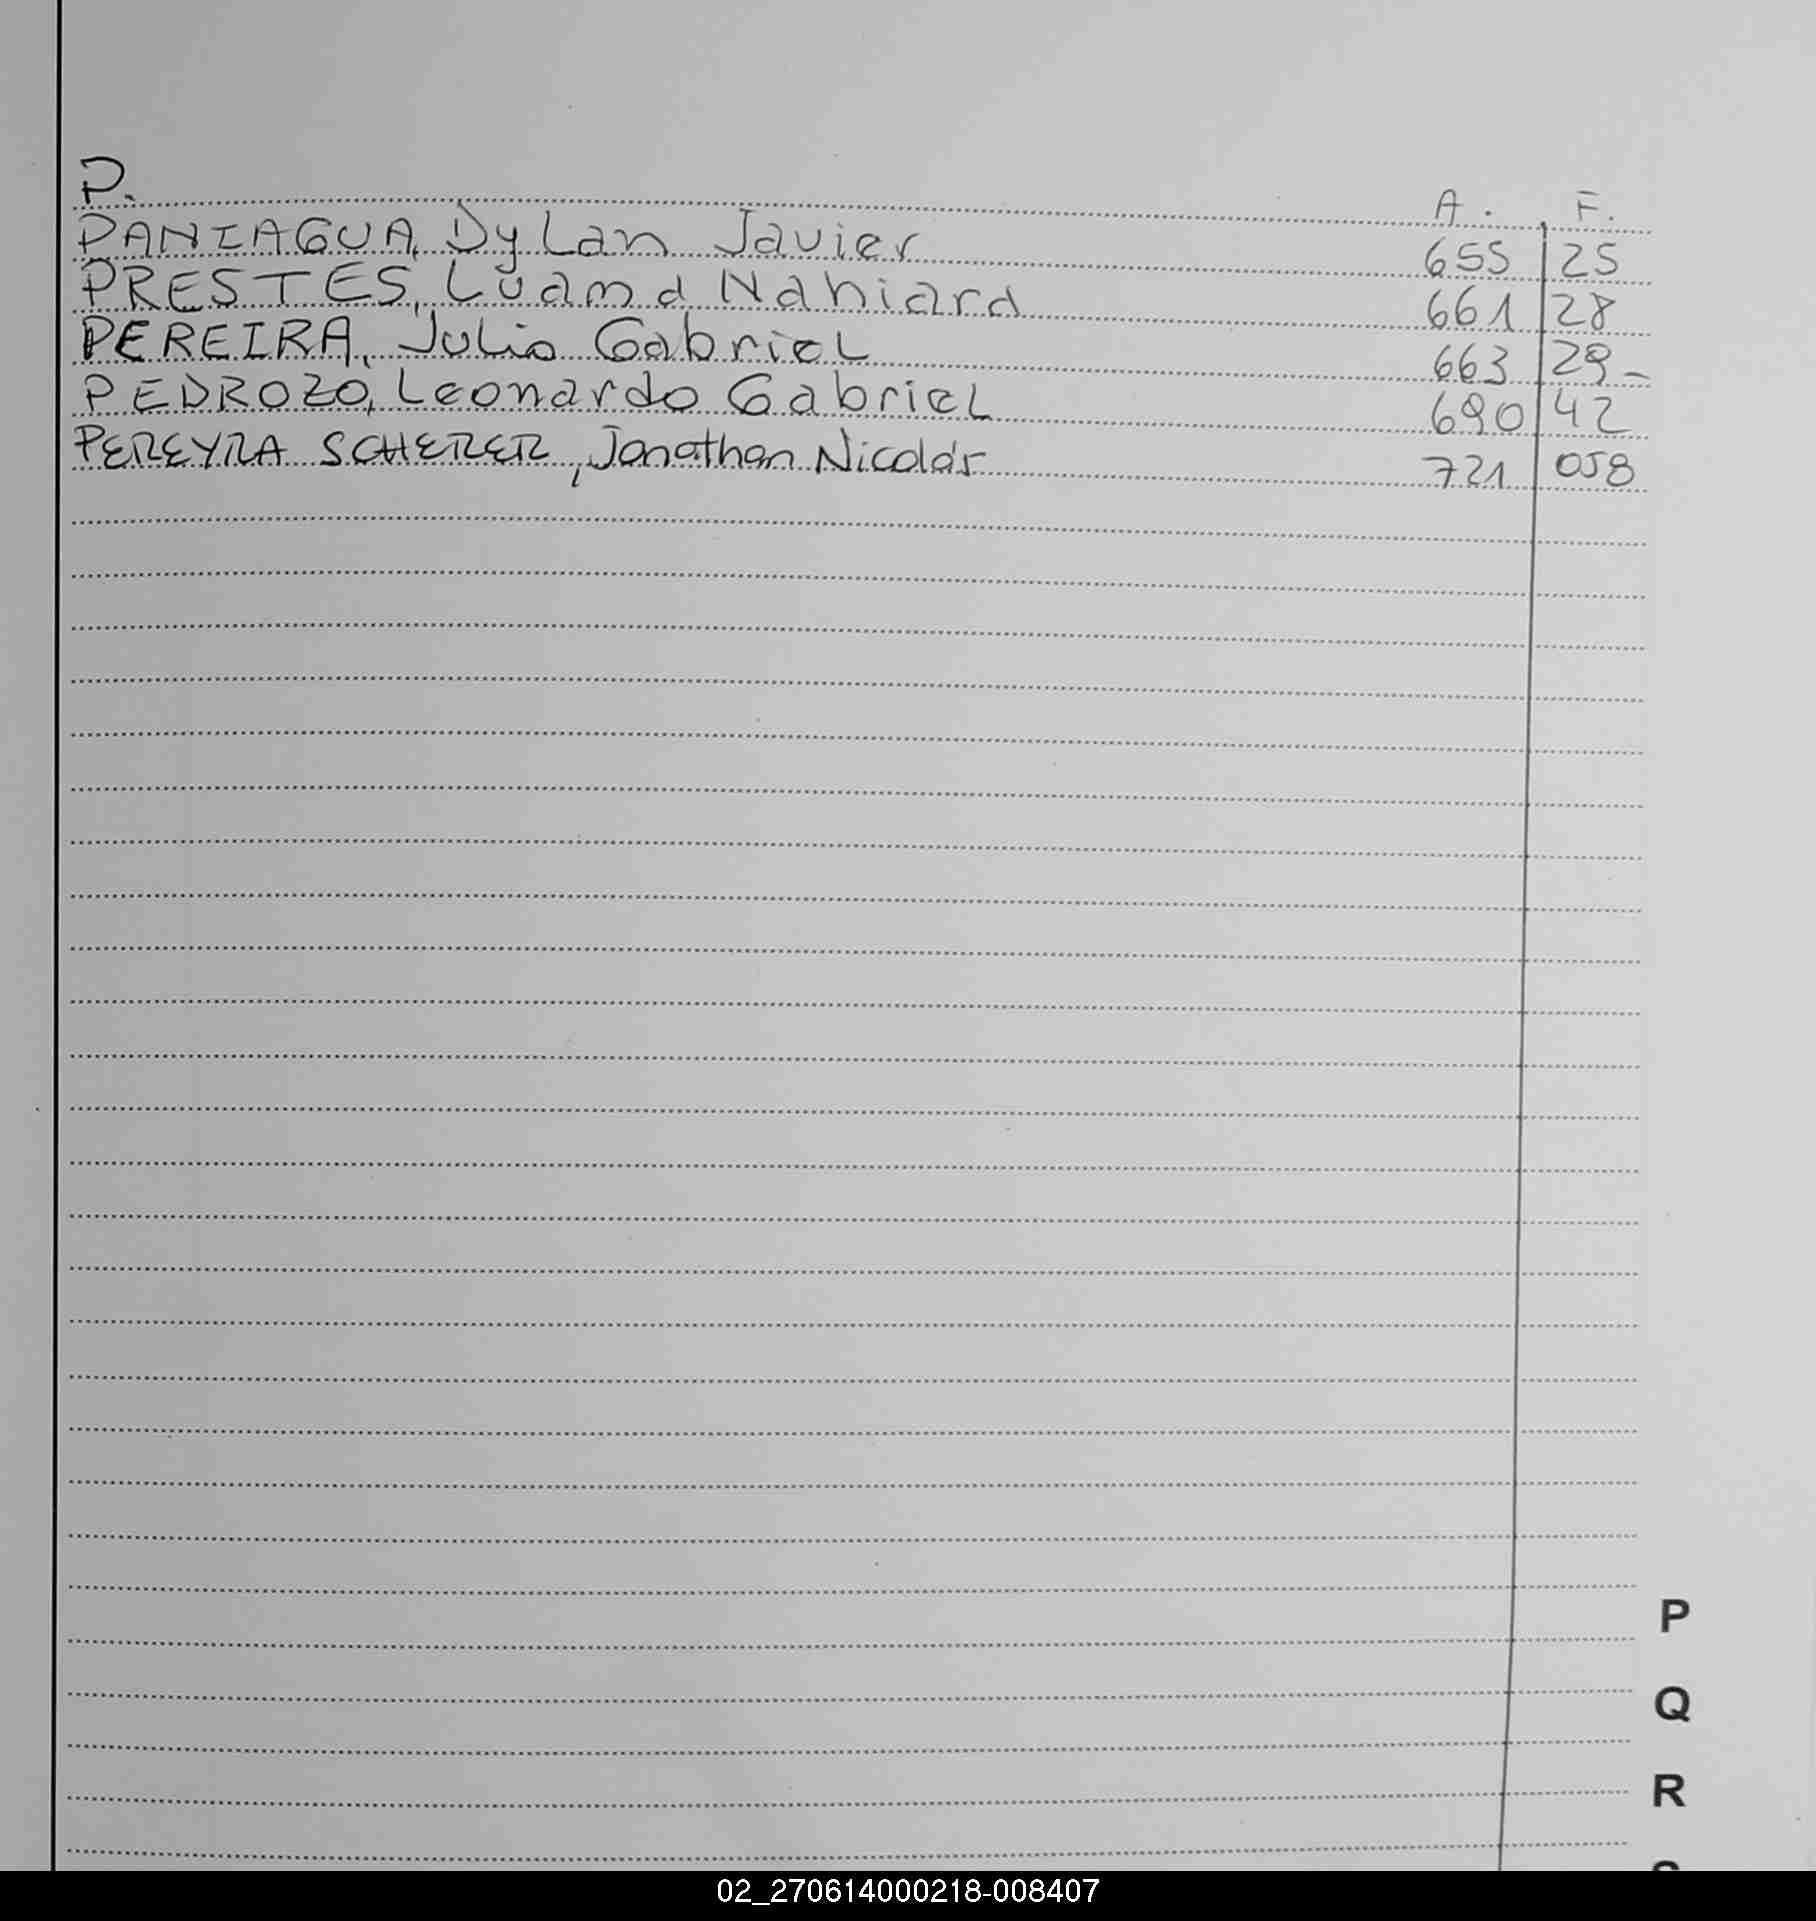 P. A. F.
PANIAGUA, Dylan Javier 655 25
PRESTES, Luana Nahiara 661 28
PEREIRA, Julio Gabriel 663 29
PEDROZO, Leonardo Gabriel 690 42
PEREYRA SCHERER, Jonathan Nicolás 721 058
P
Q
R
02_270614000218-008407